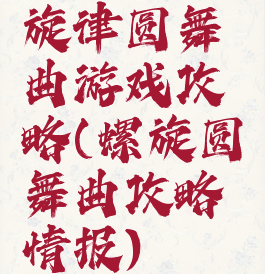 旋律圆舞
曲游戏攻
略(螺旋圆
舞曲攻略
情报)